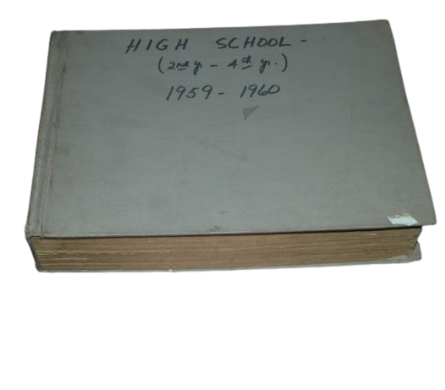 HIGH SCHOOL -
(2nd y. - 4th yr.)
1959 - 1960